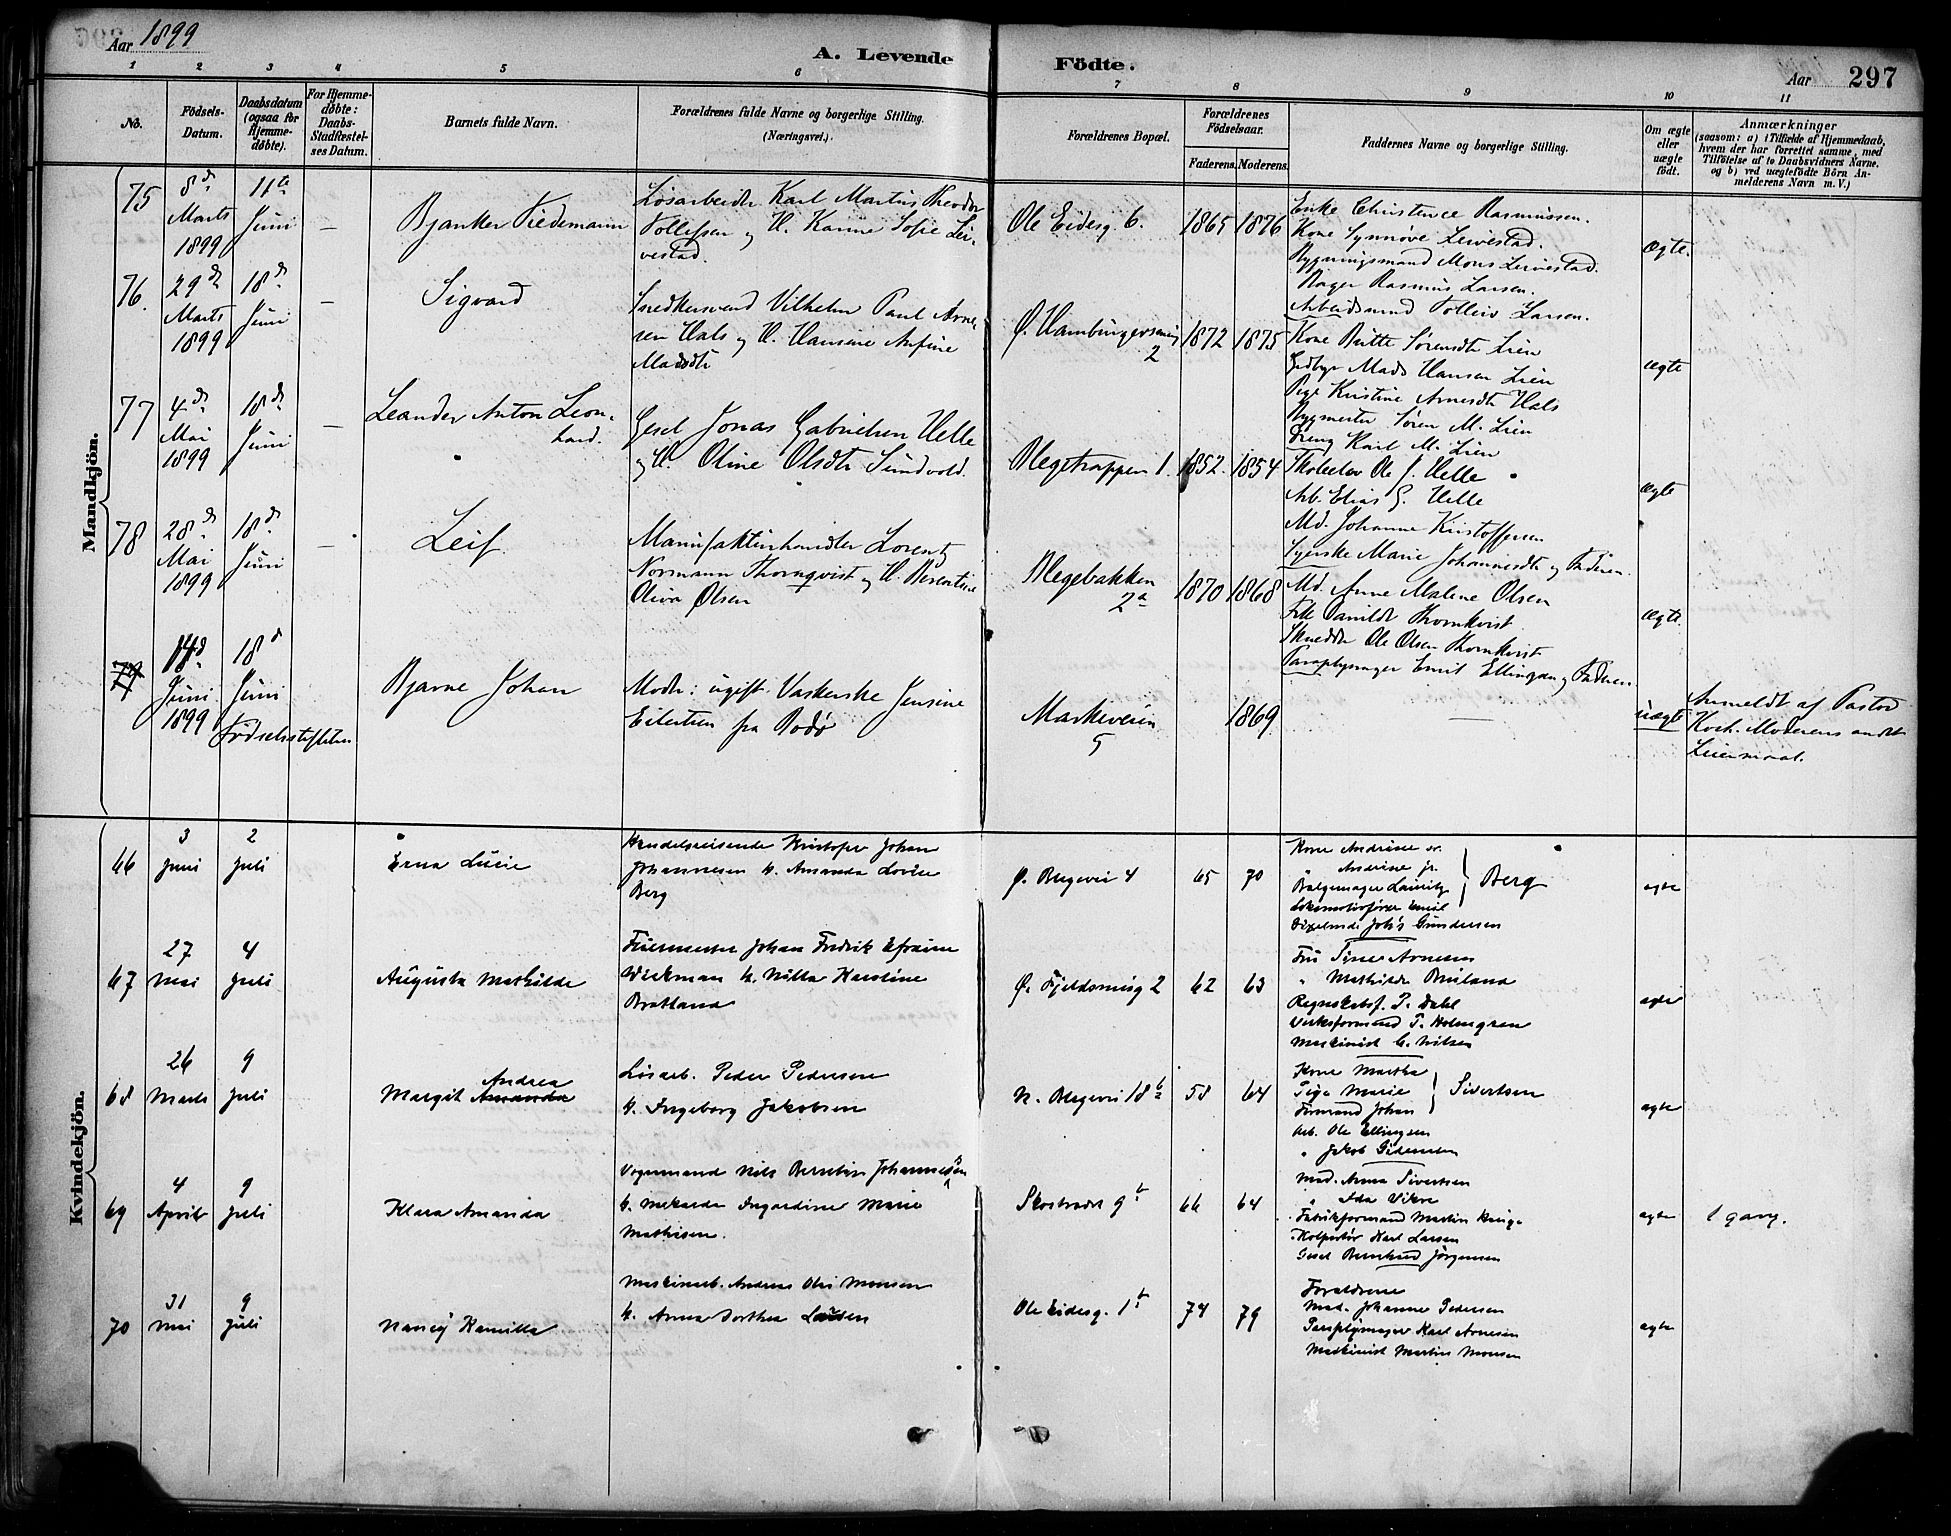 Aar 1899
A. Levende Födte.
Aar 297
1 2 3 4 5 6 7 8 9 10 11
No.
Födsels-Datum.
Daabsdatum (ogsaa for Hjemme-døbte).
For Hjemme-døbte: Daabs-Stadfæstel-ses Datum.
Barnets fulde Navn.
Forældrenes fulde Navne og borgerlige Stilling.
(Næringsvei.)
Forældrenes Bopæl.
Forældrenes Födselsaar.
Faderens. Moderens.
Faddernes Navne og borgerlige Stilling.
Om ægte eller uægte født.
Anmærkninger
(saasom: a) i Tilfælde af Hjemmedaab,
hvem der har forrettet samme, med
Tilföielse af to Daabsvidners Navne,
og b) ved uægtefödte Börn An-
melderens Navn m. V.)
Mandkjön.
75
8d Marts 1899
11te Juni
—
Bjanker Tiedemann
Løsarbeidr Karl Martin Theodor
Tollefsen og H. Karine Sofie Lei-
vestad.
Ole Eidesg. 6.
1865 1876
Enke Christence Rasmussen.
Kone Synnøve Leivestad.
Bygningsmand Mons Leivestad.
Rasmus Larsen.
Arbeidsmand Tolleiv Larsen.
Ægte.
76.
29d Marts 1899
18d Juni
—
Sigvard
Snedkersvend Vilhelm Paul Arne-
sen Hals og H. Hansine Anfine
Madsdtr
Ø. Hamburgersmug 2
1872 1875
Kone Britte Sørensdtr Lien
Mads Hansen Lien
Pige Kristine Arnesdtr Hals
Bygmester Søren M. Lien
Dreng Karl M. Lien
ægte
77
4d Mai 1899
18d Juni
—
Leander Anton Leon-
hard.
Gesel Jonas Gabrielsen Helle
og H. Oline Olsdtr Sundvold.
Blegetrappen 1.
1852. 1854
Skoleelev Ole J. Helle
Arb. Elias G. Helle
Md. Johanne Kristoffersen
Syerske Marie Johannesdtr og Faderen.
ægte
78
28d Mai 1899
18d Juni
—
Leif.
Manufakturhandler Lorentz
Normann Thornqvist og H. Berentine
Oliva Olsen
Blegebakken 2a
1870 1868
Md. Anne Malene Olsen
Frk Thornkvist
Skredder Ole Olsen Thornkvist
Paraplymager Emil Ellingsen og Faderen
Ægte.
79
14d Juni 1899
18d Juni
Fødselsstiftelsen
Bjarne Johan
Modr: ugift Vaskerske Jensine
Eilertsen fra Bodø
Markeveien 5
1869
—
uægte
Anmeldt af Pastor
Koch. Moderens andet
Leiermaal.
Kvindekjön.
66
3 Juni
2 Juli
Erna Lucie
Handelsreisende Kristofer Johan
Johannesen H. Amanda Lovise
Berg
Ø. Blegevei 4
65 70
Kone Andrine sr.
" Andrine jr.
Bælgemager Lauritz
Lokomotivfører Emil
} Berg
Johs Gundersen
ægte
67
27 Mai
4 Juli
Augusta Mathilde
Fiermester Johan Fredrik Efraim
Wickman H. Nilla Karoline
Brattland
Ø. Fjeldsmug 2
62 63
Fru Tine Arnesen
" Mathilde Breiland
Regnskabsf. P. Dahl
Verksformand T. Holmgren
Maskinist C. Nilsen
ægte
68
26 Marts
9 Juli
Margit Amanda Andrea
Løsarb. Peder Pedersen
H. Ingeborg Jakobsen
N. Blegevei 18b
58 64
Kone Martha
Pige Marie
Formand Johan
} Sivertsen
Arb. Ole Ellingsen
" Jakob Gidemsen
ægte
69
4 April
9 Juli
Klara Amanda
Vognmand Nils Berntin Johannessen
H. Ingardine Marie
Mathisen.
Skostrædet 9b
66 64
Mad. Anna Sivertsen
" Ada Vikre
Fabrikformand Martin
Kolportør Karl Larsen
Gesel Bernhard Jörgensen
ægte
1 gang.
70
31 Mai
9 Juli
Nancy Kamilla
Maskinarb. Andreas Olai Monsen
H. Anna Dorthea Lauden
Ole Eidesg. 1b
74 79
Forældrene
Mad. Johanne Pedersen
Paraplymager Karl Arnesen
Maskinist Martin Monsen
ægte